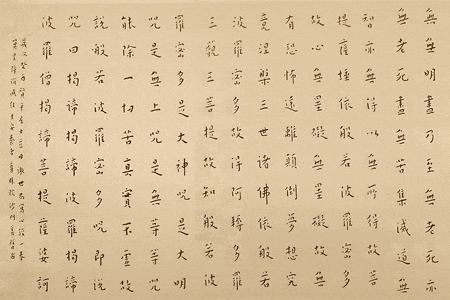 無明盡乃至無老死亦
無老死盡無苦集滅道無
智亦無得以無所得故菩
提薩埵依般若波羅蜜多
故心無罣礙無罣礙故無
有恐怖遠離顛倒夢想究
竟涅槃三世諸佛依般若
波羅蜜多故得阿耨多羅
三藐三菩提故知般若波
羅蜜多是大神咒是大明
咒是無上咒是無等等咒
能除一切苦真實不虛故
說般若波羅蜜多咒即說
咒曰揭諦揭諦波羅揭諦
波羅僧揭諦菩提薩婆訶